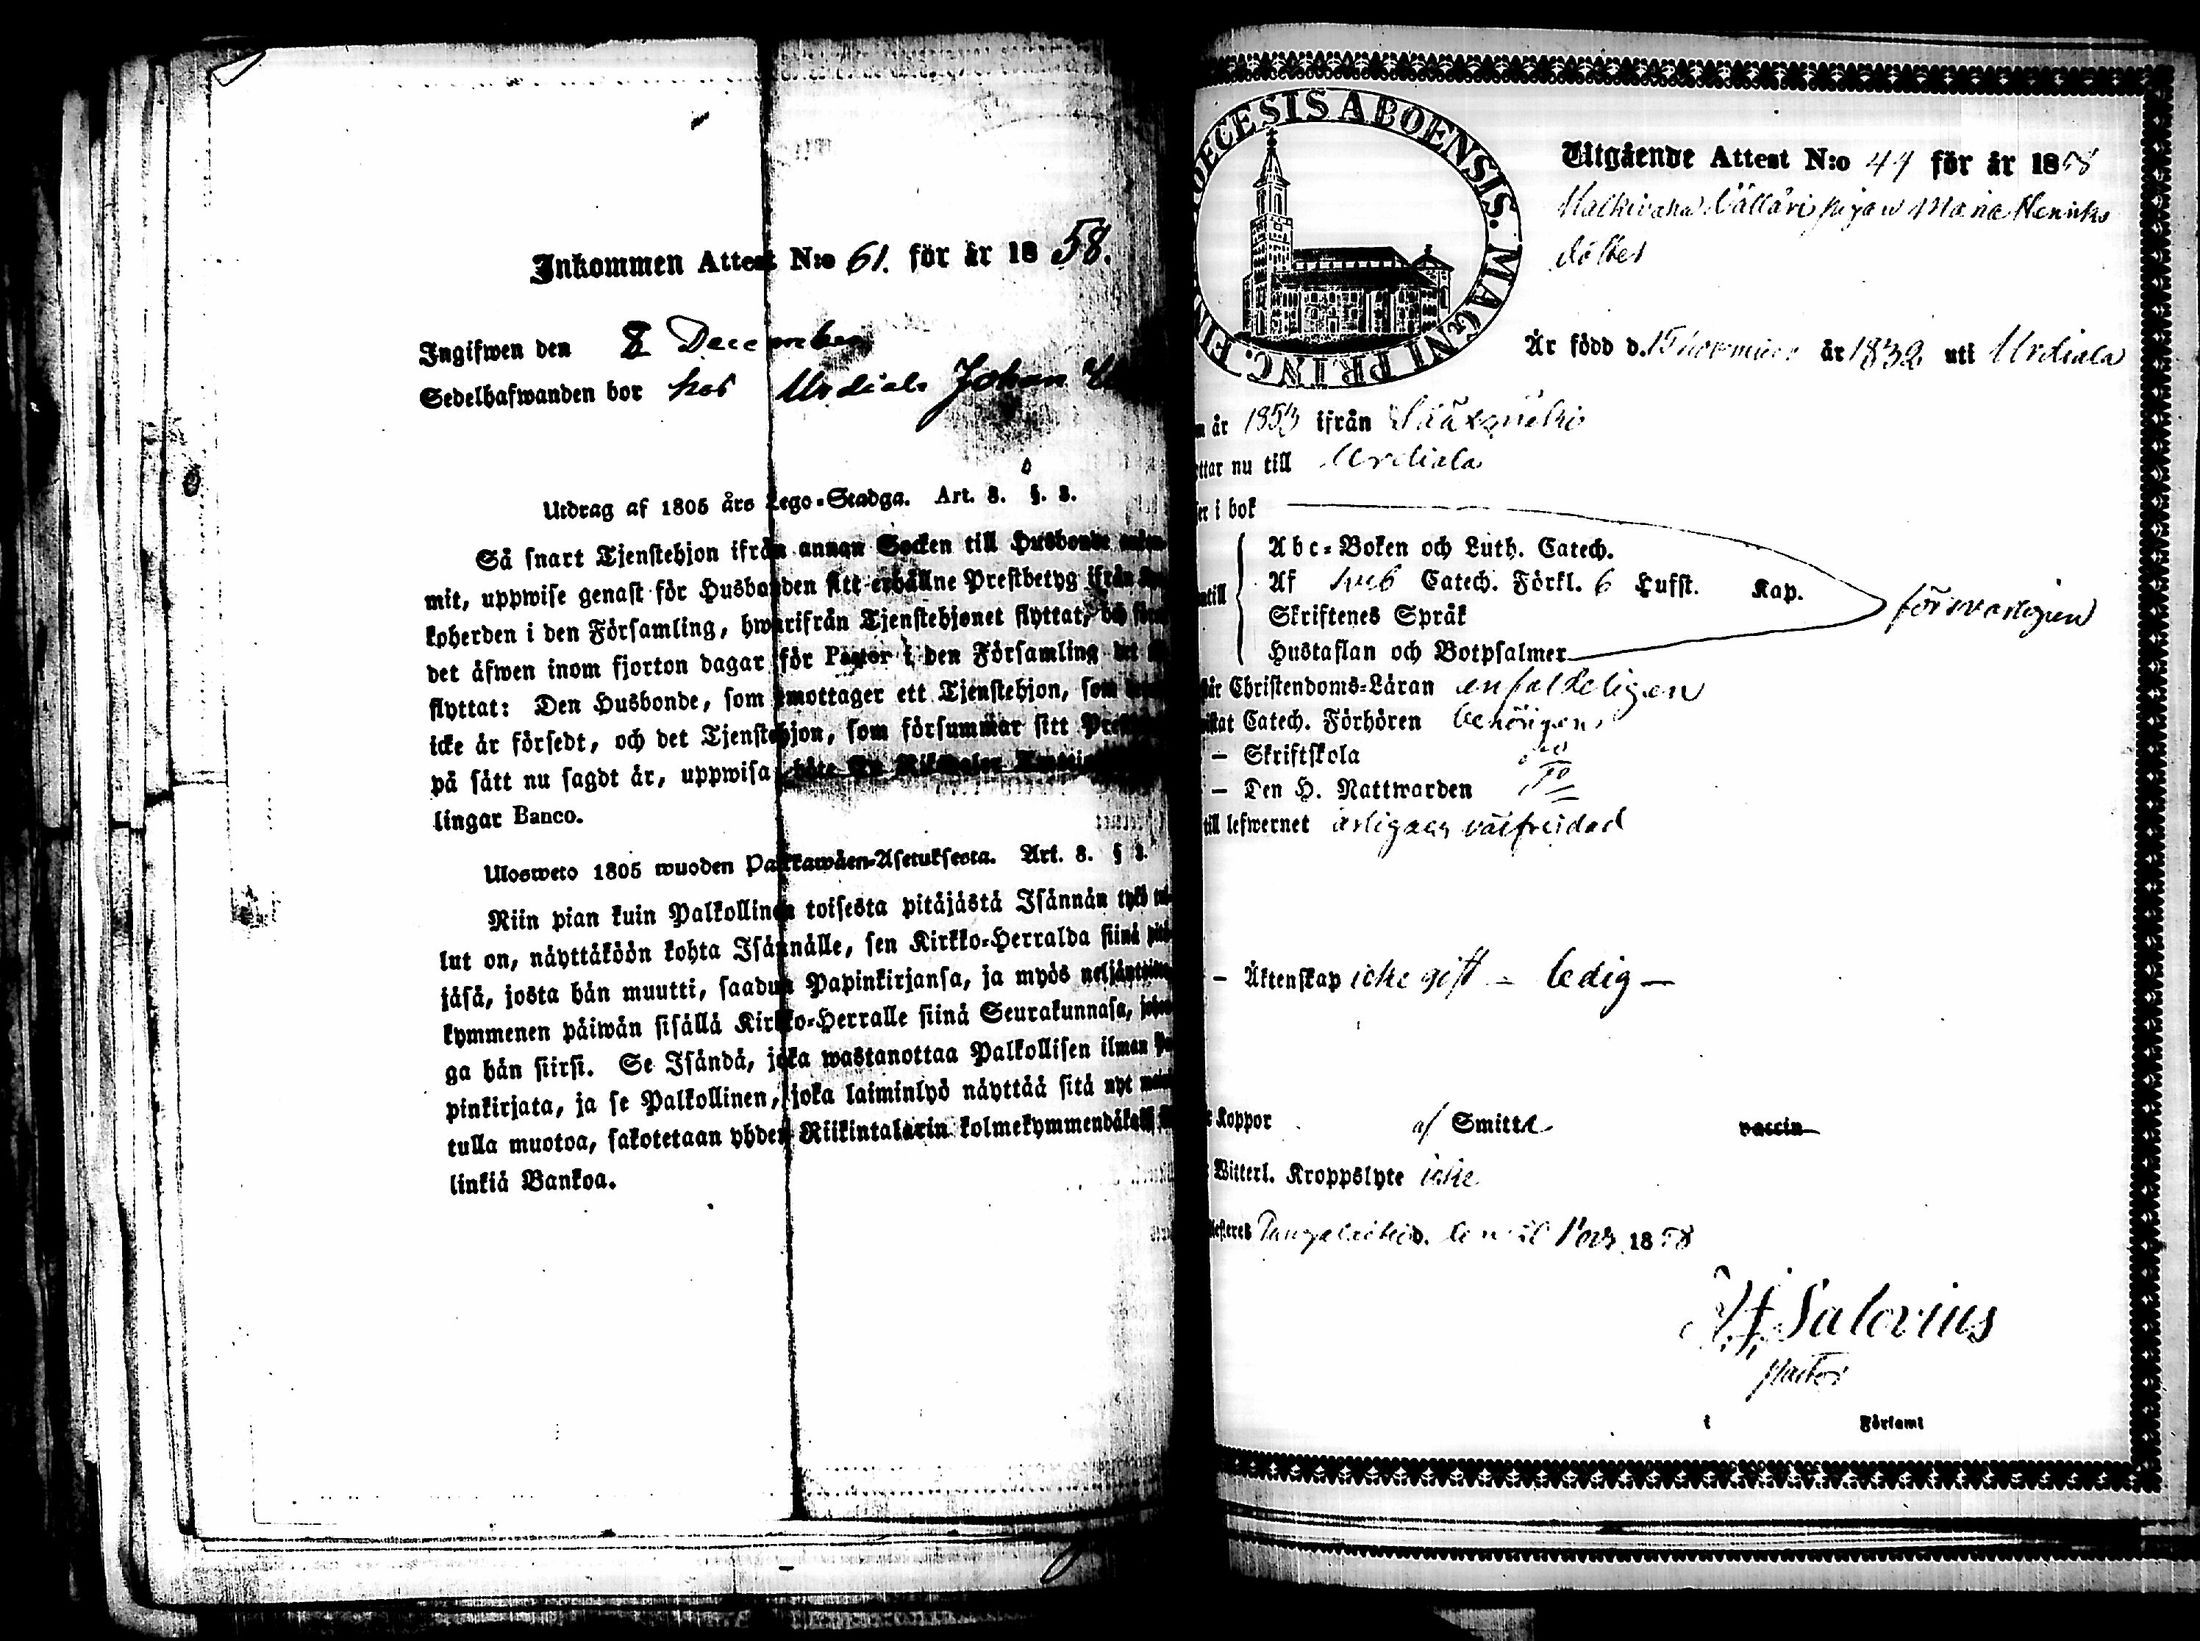 Inkommen Attest N:o 61. för år 18 58.
Ingifwen den 8 December
Sedelhafwanden bor hos Urdiala Johan
Utdrag af 1805 års Lego-Stadga. Art. 8. §. 3.
Så snart Tjenstehjon ifrån annan Socken till Husbonde
mit, uppwise genast för Husbonden sitt erhållne Prestbetyg ifrån
koherden i den Församling, hwarifrån Tjenstehjonet flyttat, och
det äfwen inom fjorton dagar för Pastor i den Församling det
flyttat: Den Husbonde, som emottager ett Tjenstehjon, som
icke är försedt, och det Tjenstehjon, som försummar sitt
på sätt nu sagdt är, uppwisa, böte En Riksdaler
lingar Banco.
Ulosweto 1805 wuoden Palkkawäen-Asetuksesta. Art. 8. § 3.
Niin pian kuin Palkollinen toisesta pitäjästä Isännän työ
lut on, näyttäköön kohta Isännälle, sen Kirkko-Herralda siinä
jäsä, josta hän muutti, saadun Papinkirjansa, ja myös
kymmenen päiwän sisällä Kirkko-Herralle siinä Seurakunnasa,
ga hän siirsi. Se Isändä, joka wastanottaa Palkollisen ilman
pinkirjata, ja se Palkollinen, joka laiminlyö näyttää sitä nyt
tulla muotoa, sakotetaan yhden Riikintalarin
linkiä Bankoa.
DIOECESIS ABOENSIS. MAGNI PRINC. FIN
Utgående Attest N:o 44 för år 1858
pigan Maria Henriks
dotter
Är född d. 15 November år 1832 uti Urdiala
år 1853 ifrån Sääxmäki
nu till Urdiala
i bok
Abc-Boken och Luth. Catech.
Af Sveb Catech. Förkl. 6 Hufst. Kap.
Skriftenes Språk
Hustaflan och Botpsalmer
försvarligen
Christendoms-Läran enfaldeligen
Catech. Förhören behörigen
– Skriftskola
– Den H. Nattwarden
till lefwernet ärlig och välfrejdad
– Äktenskap icke gift – ledig –
Koppor af Smitta vaccin
Witterl. Kroppslyte icke
Nov. 1858
Salovius
Pastor
i Församl